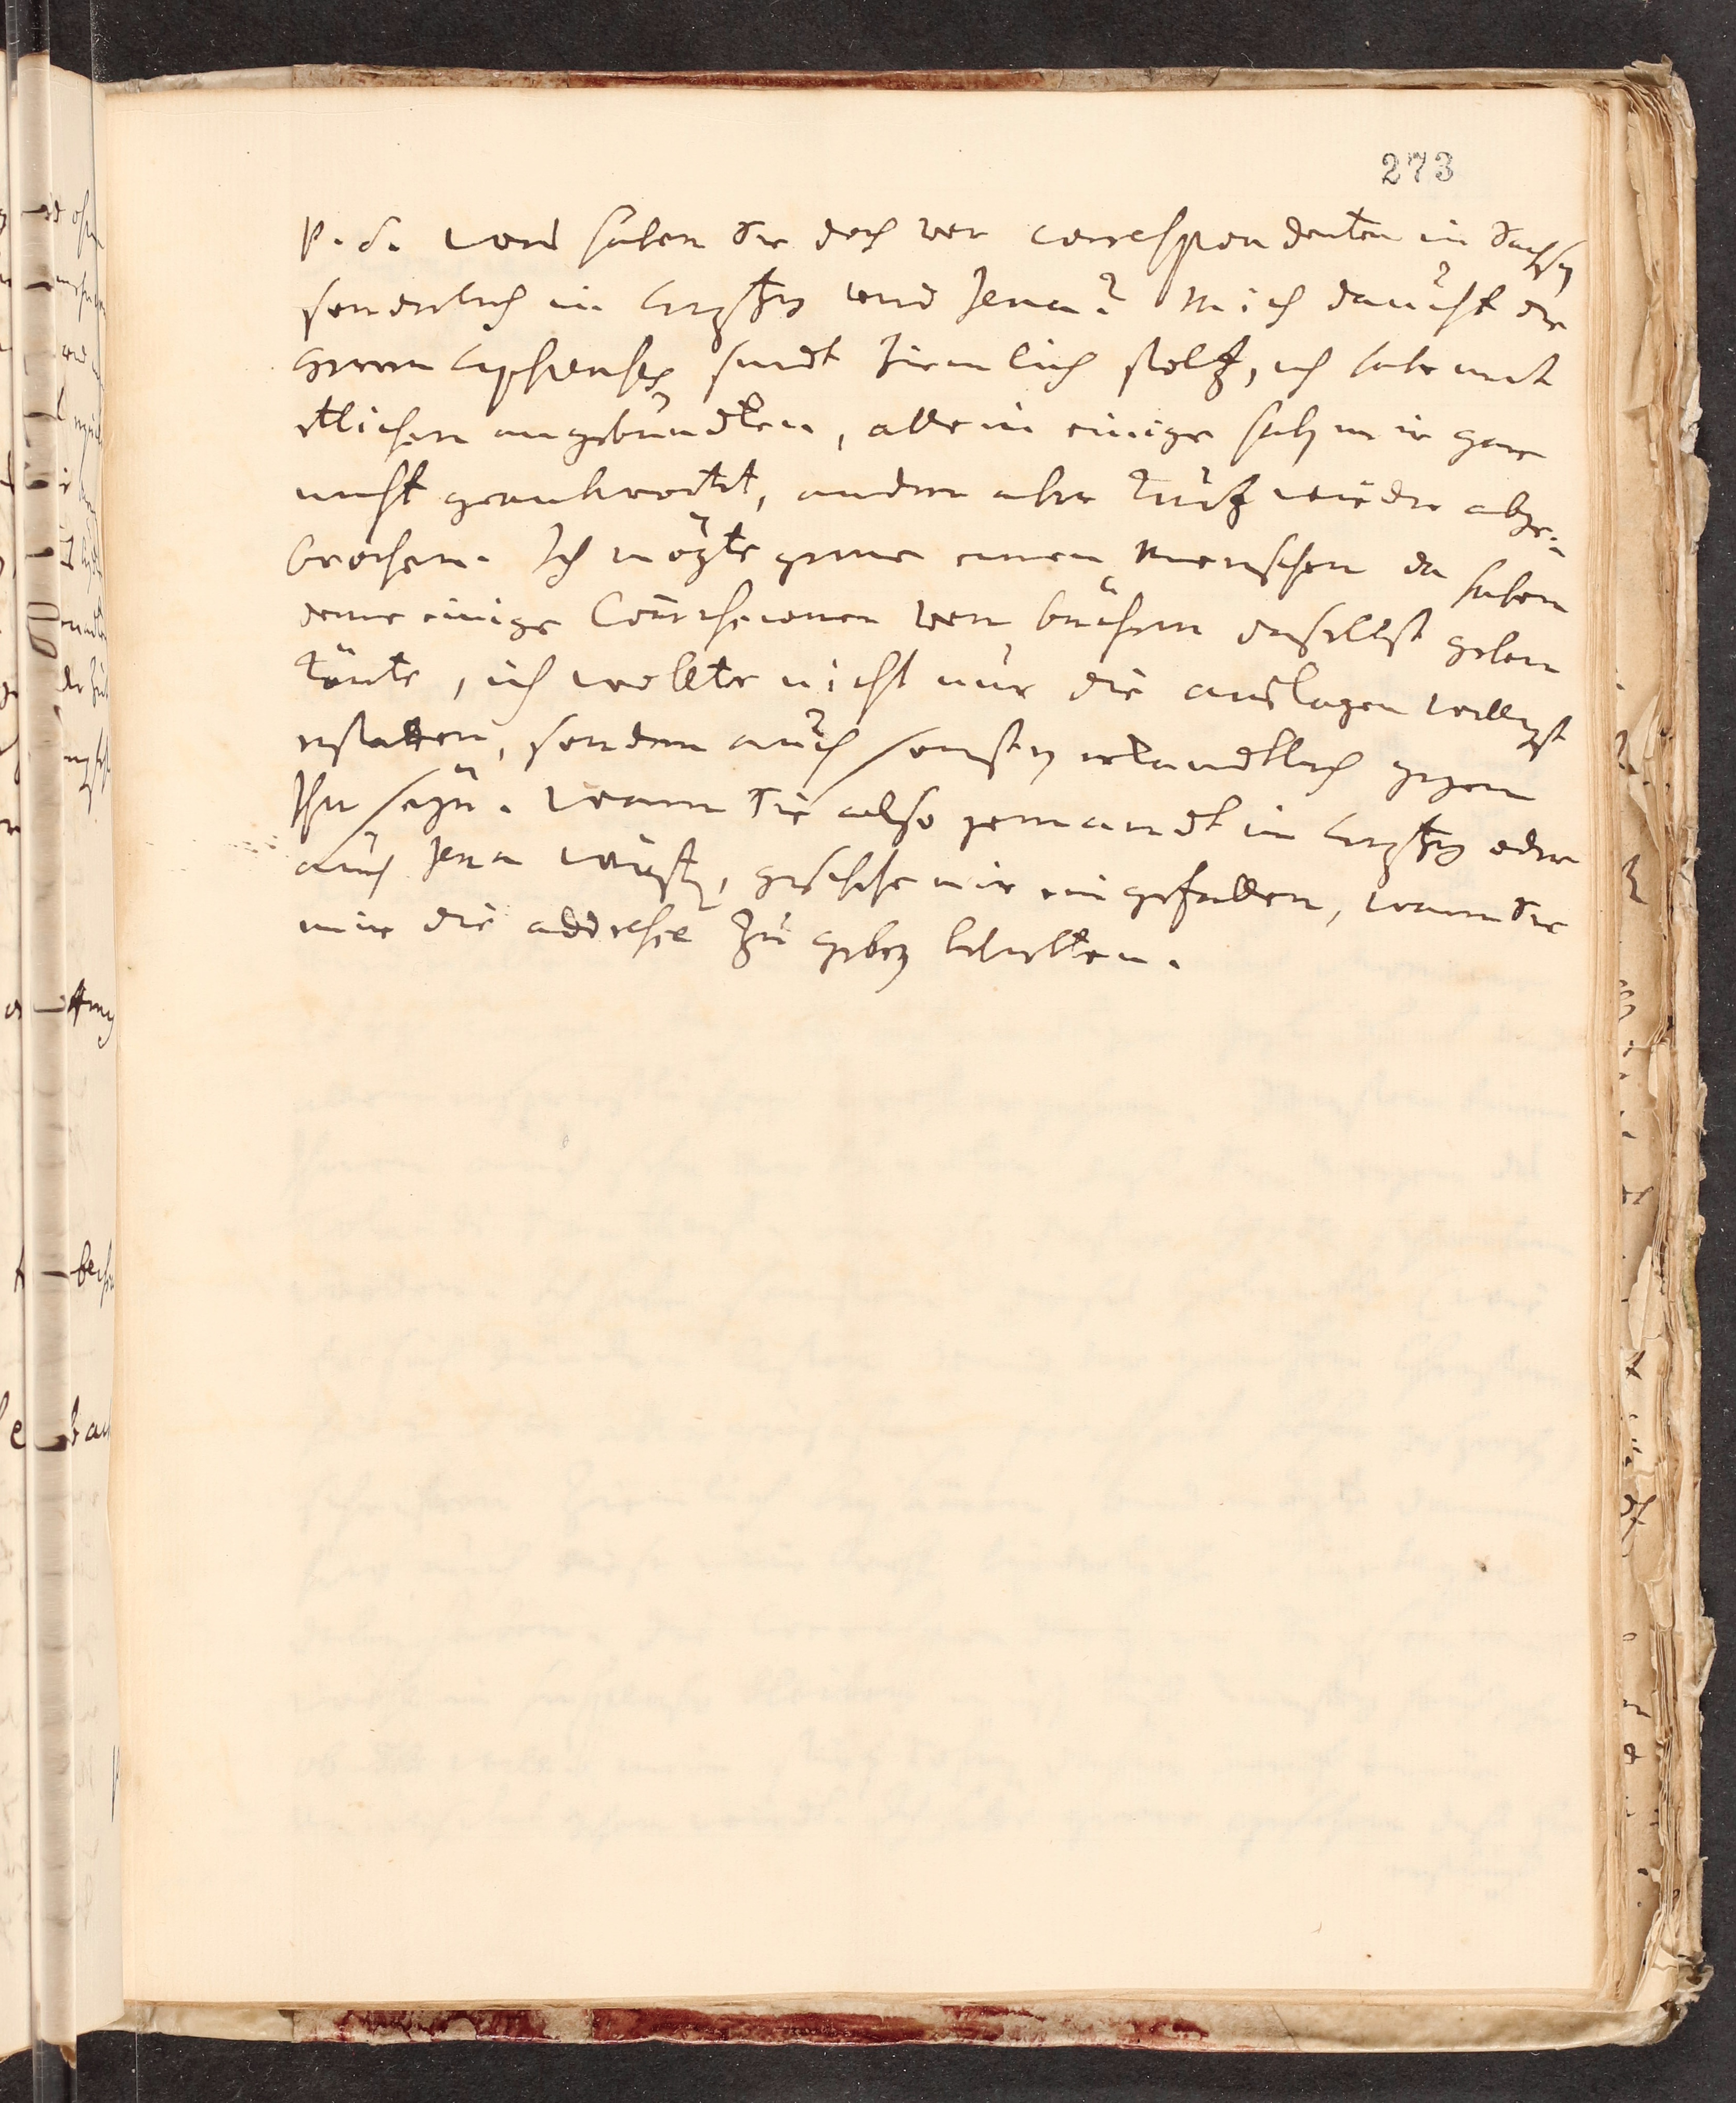 273
P. S. Was haben Sie doch vor correspondenten in Sachsen
sonderlich in Leypzig und Jena? Mich däucht die
Herren Lipsienses sindt ziemlich stoltz, ich habe mit
etlichen angebunden, allein einige haben mir gar
nicht geantwortet, andere aber kurtz wieder abge-
brochen. Ich mögte gerne einen Menschen da haben
deme einige Commissionen von büchern daselbst geben
könte, ich wollte nicht nur die auslagen willigst
erstatten, sondern auch sonsten erkandtlich gegen
Ihn seyn. Wann Sie also jemandt in Leypzig oder
auch Jena wüsten, geschehe mir ein gefallen, wann Sie
mir die addresse zu geben beliebten.